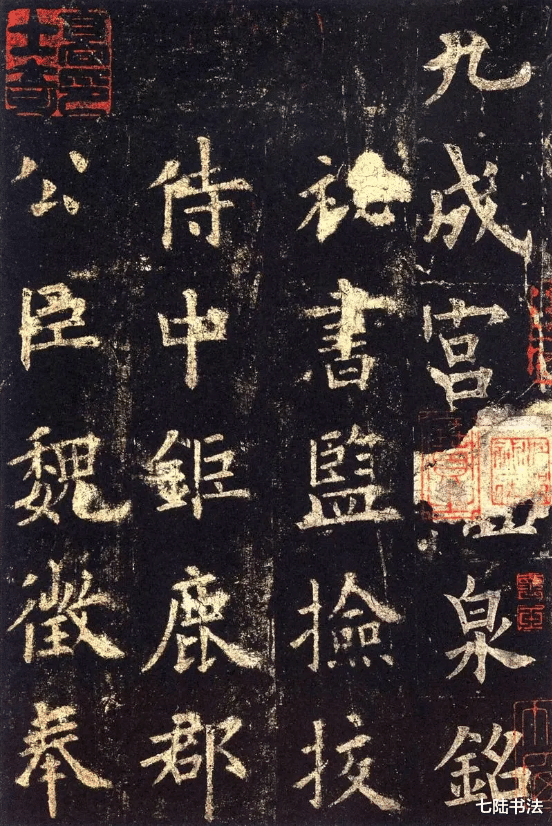 九成宮泉銘
祕書監撿挍
侍中鉅鹿郡
公臣魏徵奉
七陆书法